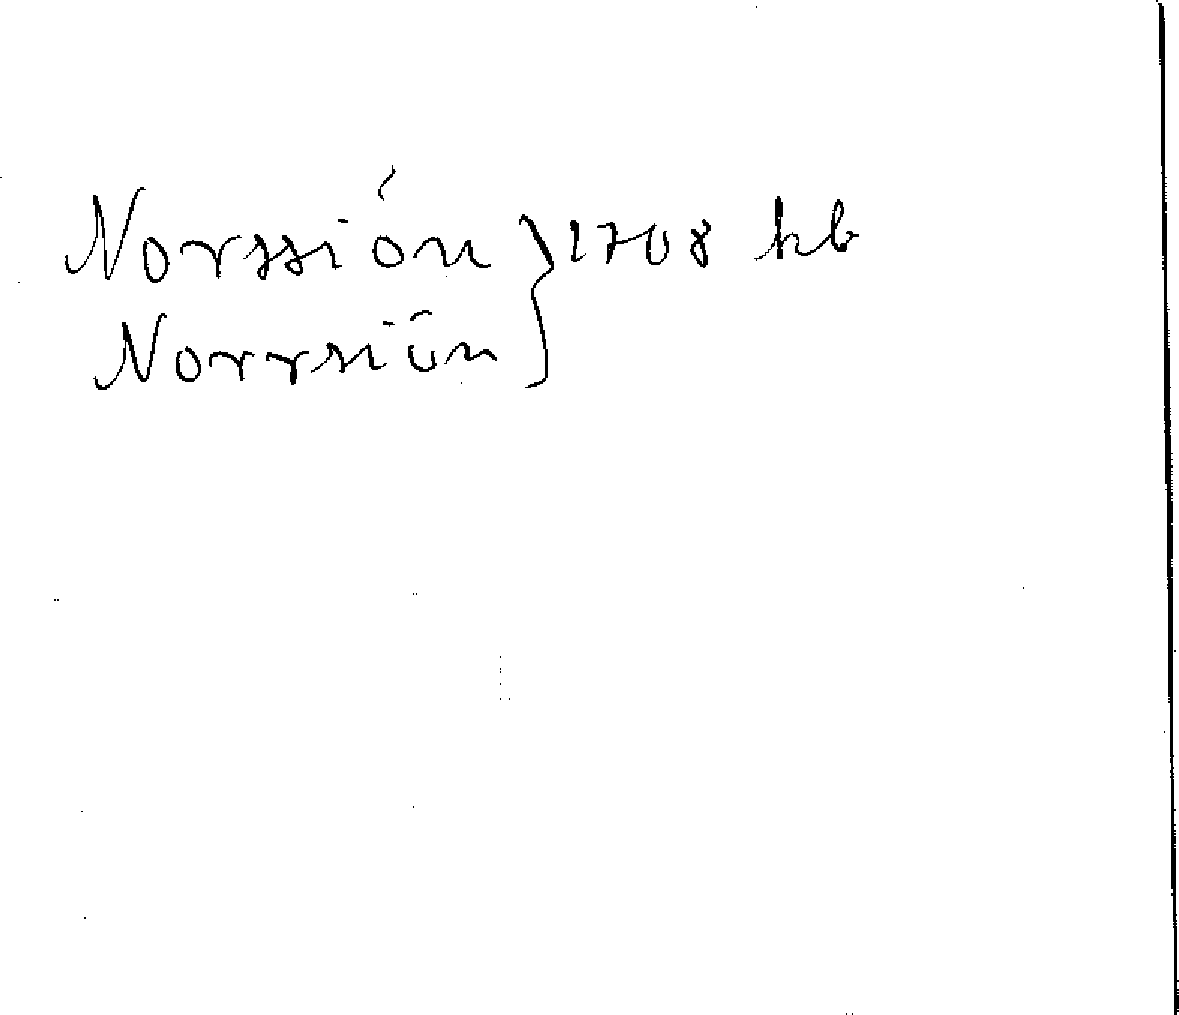 Norssión } 1708 hb
Norrsiön